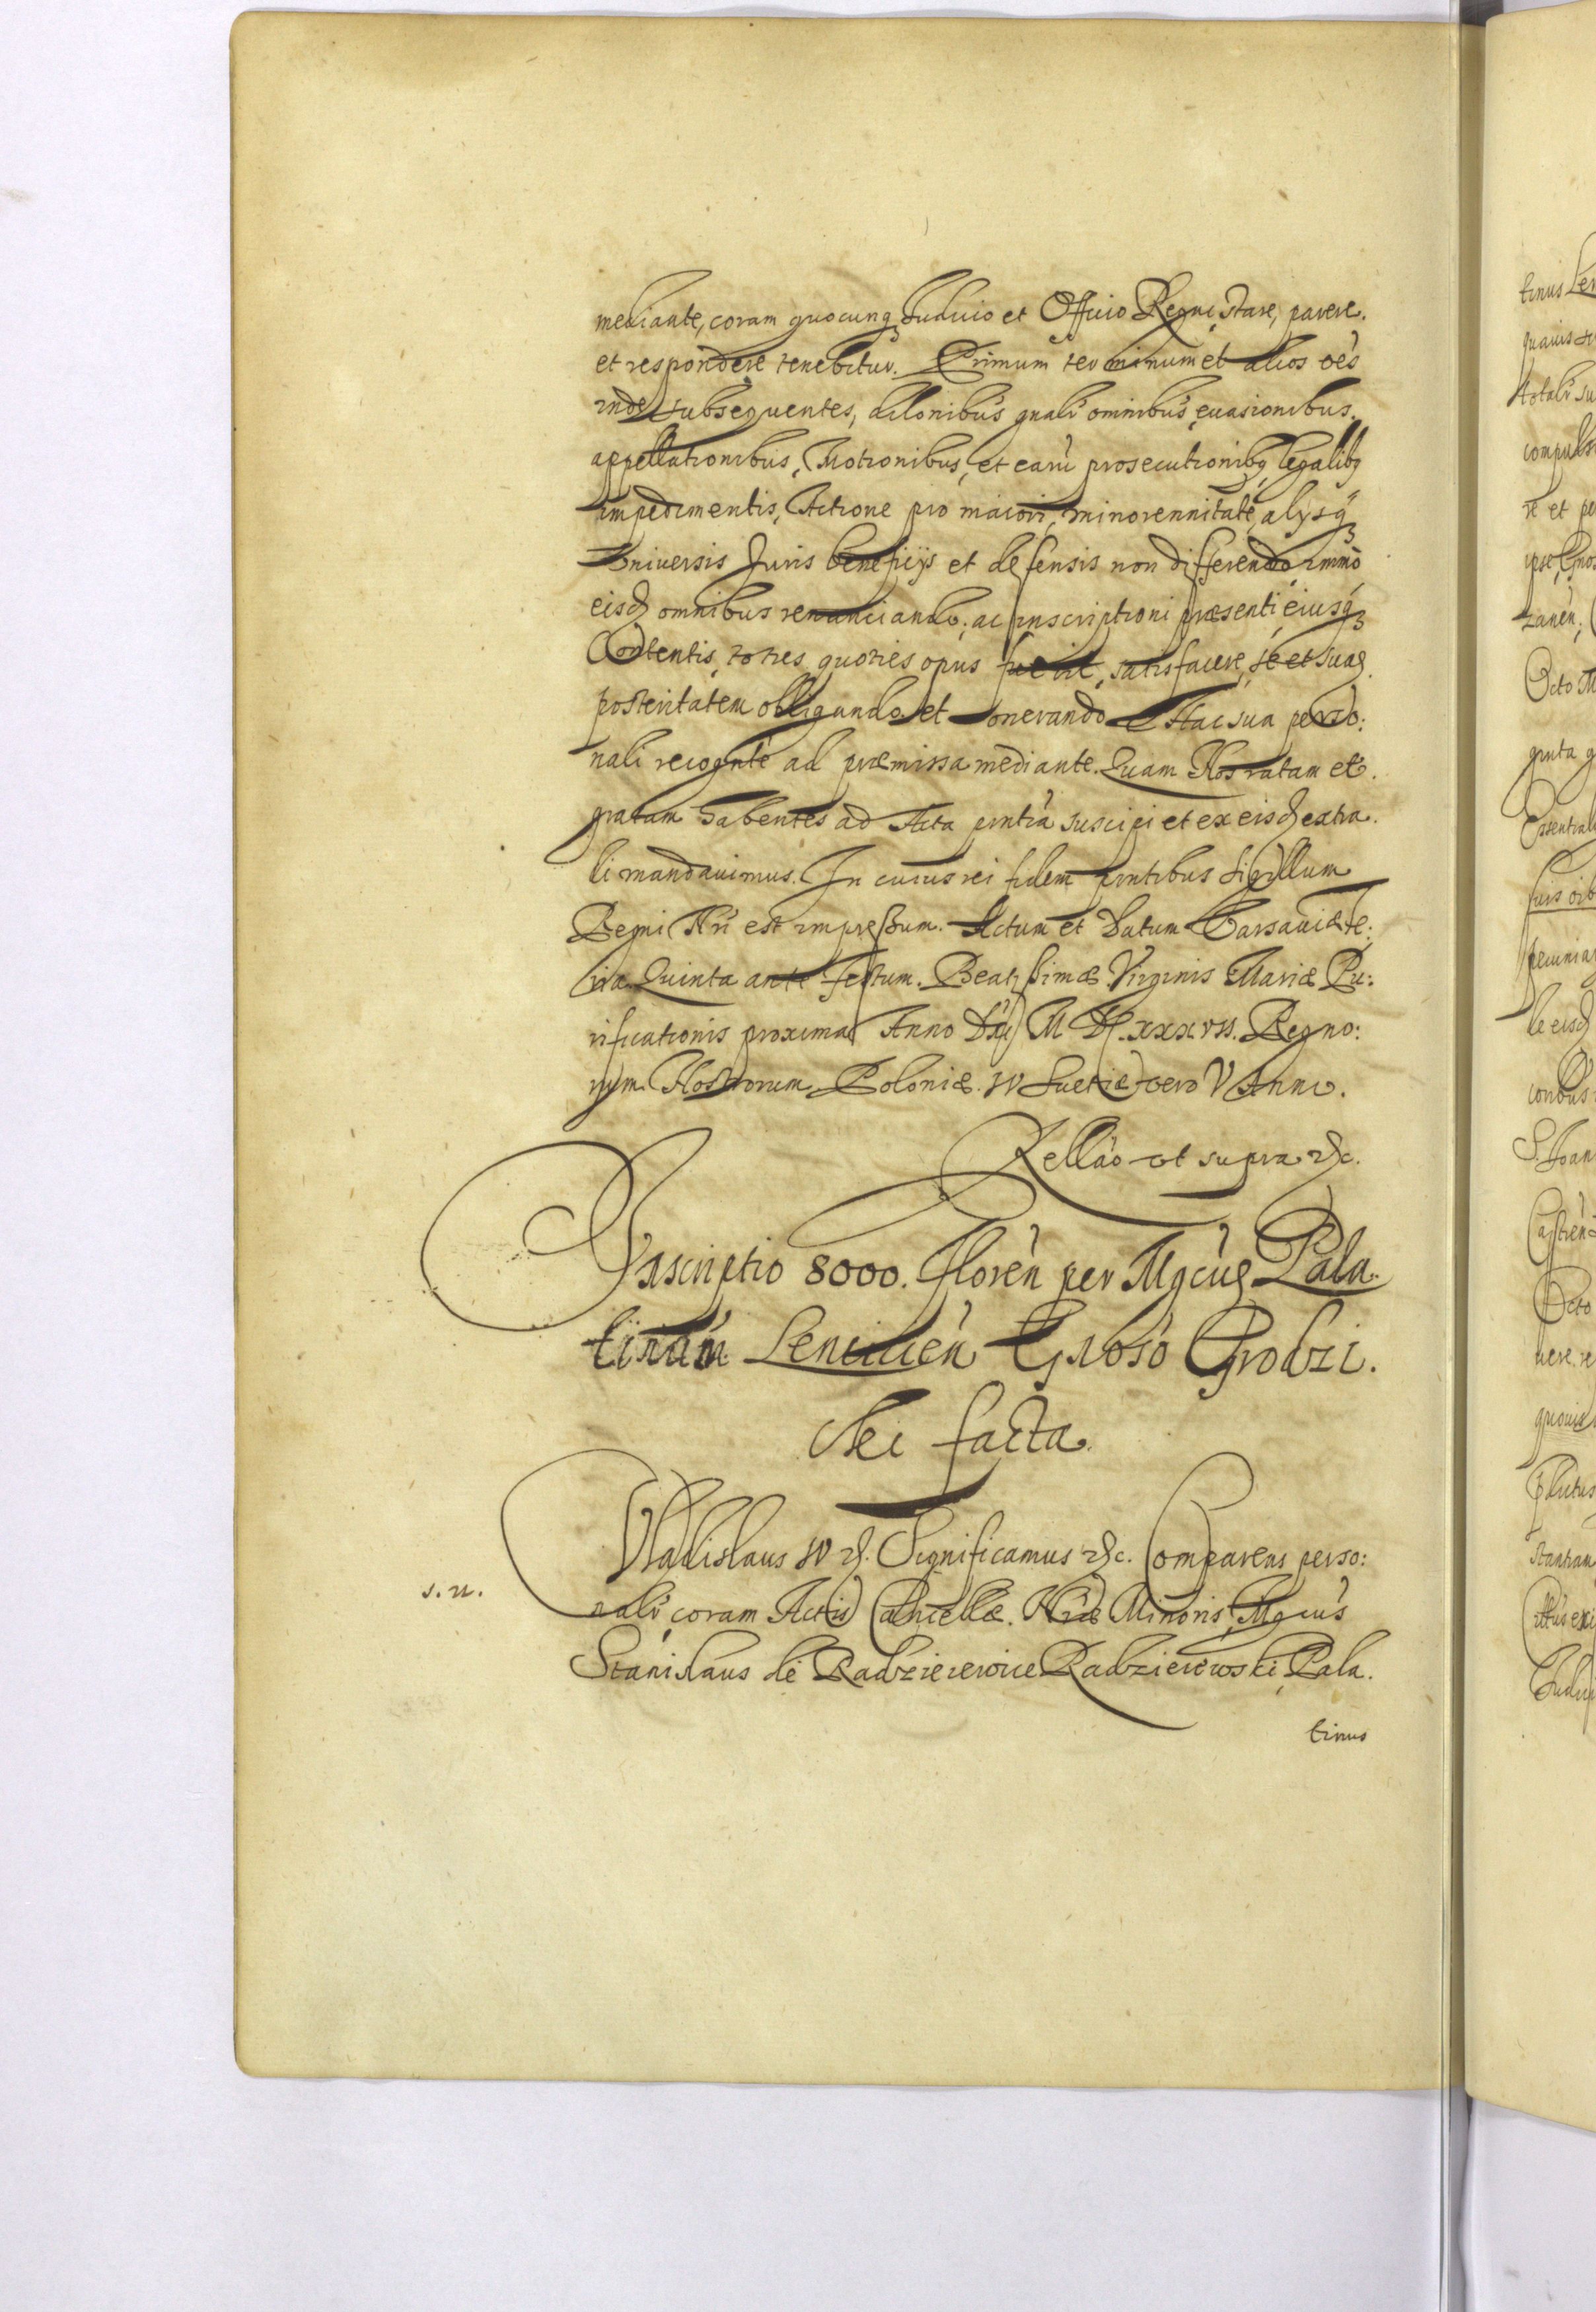 mediante, coram quocunq Iudicio et Officio Regni, stare, parere.
et respondere tenebitur. Primum terminum et alios oēs
inde subsequentes, dilonibus quali omnibus, euasionibus.
appellationibus, Motionibus, et earū prosecutionibq legalibq
impedimentis, Actione pro maiori, minorennitate, alysq
Vniuersis Iuris beneficijs et defensis non differendo, immò
eisd omnibus renunciando, ac inscriptioni præsenti, eiusq
Contentis, toties quoties opus fuerit, satisfacere, se et suaq
posteritatem obligando et onerando Hac sua perso:
nali recognte ad præmissa mediante. Quam Nos ratam et.
gratam habentes ad Acta pntia suscipi et ex eisd extra.
di mandauimus. In cuius rei fidem pntibus Sigillum
Regni Nri est impressum. Actum et Datum Varsauiæ Fe:
ria Quinta ante festum. Beatissimæ Virginis Mariæ Pu:
rificationis proxima Anno Dni M DC.XXXVII. Regno:
rum Nostrorum Poloniæ IV Suetiæ vero V Anno.
Rellāo ut supra etc.
Inscriptio 8000. Floren per Mgcūq Pala.
tinum Lenicien Gnoso Grodzi.
cki facta
Vladislaus IV etc. Significamus etc. Comparens perso:
s. n.
nali, coram Actis Cancellæ. Nræ Minoris, Mgcus
Stanislaus de Radzieiewice Radzieiewski, Pala.
tinus